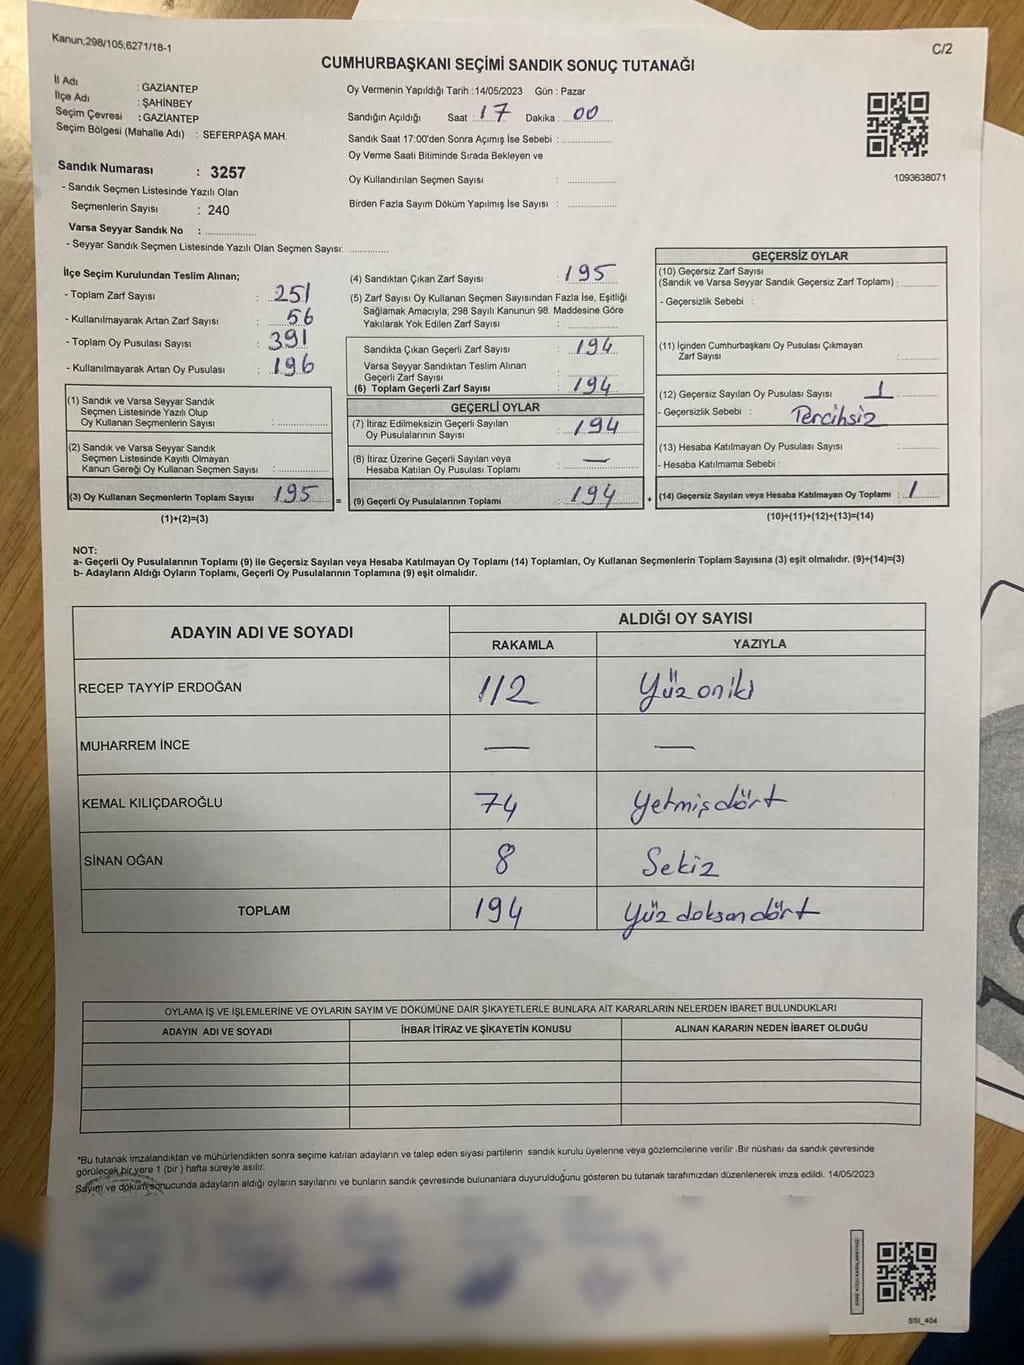 Kanun;298/105,6271/18-1
C/2
CUMHURBAŞKANI SEÇİMİ SANDIK SONUÇ TUTANAĞI
İl Adı : GAZİANTEP
İlçe Adı : ŞAHİNBEY
Seçim Çevresi : GAZİANTEP
Seçim Bölgesi (Mahalle Adı) : SEFERPAŞA MAH.
Oy Vermenin Yapıldığı Tarih :14/05/2023 Gün : Pazar
Sandığın Açıldığı Saat : 17 Dakika : 00
Sandık Saat 17:00'den Sonra Açımış İse Sebebi :
Oy Verme Saati Bitiminde Sırada Bekleyen ve
Oy Kullandırılan Seçmen Sayısı :
Birden Fazla Sayım Döküm Yapılmış İse Sayısı :
1093638071
Sandık Numarası : 3257
- Sandık Seçmen Listesinde Yazılı Olan
Seçmenlerin Sayısı : 240
Varsa Seyyar Sandık No :
- Seyyar Sandık Seçmen Listesinde Yazılı Olan Seçmen Sayısı:
İlçe Seçim Kurulundan Teslim Alınan;
- Toplam Zarf Sayısı : 251
- Kullanılmayarak Artan Zarf Sayısı : 56
- Toplam Oy Pusulası Sayısı : 391
- Kullanılmayarak Artan Oy Pusulası : 196
(1) Sandık ve Varsa Seyyar Sandık
Seçmen Listesinde Yazılı Olup
Oy Kullanan Seçmenlerin Sayısı :
(2) Sandık ve Varsa Seyyar Sandık
Seçmen Listesinde Kayıtlı Olmayan
Kanun Gereği Oy Kullanan Seçmen Sayısı :
(3) Oy Kullanan Seçmenlerin Toplam Sayısı 195 =
(1)+(2)=(3)
(4) Sandıktan Çıkan Zarf Sayısı : 195
(5) Zarf Sayısı Oy Kullanan Seçmen Sayısından Fazla İse, Eşitliği
Sağlamak Amacıyla, 298 Sayılı Kanunun 98. Maddesine Göre
Yakılarak Yok Edilen Zarf Sayısı :
Sandıkta Çıkan Geçerli Zarf Sayısı : 194
Varsa Seyyar Sandıktan Teslim Alınan
Geçerli Zarf Sayısı :
(6) Toplam Geçerli Zarf Sayısı : 194
GEÇERLİ OYLAR
(7) İtiraz Edilmeksizin Geçerli Sayılan
Oy Pusulalarının Sayısı : 194
(8) İtiraz Üzerine Geçerli Sayılan veya
Hesaba Katılan Oy Pusulası Toplamı : —
(9) Geçerli Oy Pusulalarının Toplamı : 194 +
GEÇERSİZ OYLAR
(10) Geçersiz Zarf Sayısı
(Sandık ve Varsa Seyyar Sandık Geçersiz Zarf Toplamı) :
- Geçersizlik Sebebi :
(11) İçinden Cumhurbaşkanı Oy Pusulası Çıkmayan
Zarf Sayısı :
(12) Geçersiz Sayılan Oy Pusulası Sayısı 1 :
- Geçersizlik Sebebi : Percihsiz
(13) Hesaba Katılmayan Oy Pusulası Sayısı :
- Hesaba Katılmama Sebebi :
(14) Geçersiz Sayılan veya Hesaba Katılmayan Oy Toplamı : 1
(10)+(11)+(12)+(13)=(14)
NOT:
a- Geçerli Oy Pusulalarının Toplamı (9) ile Geçersiz Sayılan veya Hesaba Katılmayan Oy Toplamı (14) Toplamları, Oy Kullanan Seçmenlerin Toplam Sayısına (3) eşit olmalıdır. (9)+(14)=(3)
b- Adayların Aldığı Oyların Toplamı, Geçerli Oy Pusulalarının Toplamına (9) eşit olmalıdır.
ADAYIN ADI VE SOYADI
ALDIĞI OY SAYISI
RAKAMLA YAZIYLA
RECEP TAYYİP ERDOĞAN 112 Yüz oniki
MUHARREM İNCE — —
KEMAL KILIÇDAROĞLU 74 Yetmişdört
SİNAN OĞAN 8 Sekiz
TOPLAM 194 Yüz doksan dört
OYLAMA İŞ VE İŞLEMLERİNE VE OYLARIN SAYIM VE DÖKÜMÜNE DAİR ŞİKAYETLERLE BUNLARA AİT KARARLARIN NELERDEN İBARET BULUNDUKLARI
ADAYIN ADI VE SOYADI İHBAR İTİRAZ VE ŞİKAYETİN KONUSU ALINAN KARARIN NEDEN İBARET OLDUĞU
*Bu tutanak imzalandıktan ve mühürlendikten sonra seçime katılan adayların ve talep eden siyasi partilerin sandık kurulu üyelerine veya gözlemcilerine verilir .Bir nüshası da sandık çevresinde
görülecek bir yere 1 (bir ) hafta süreyle asılır.
Sayım ve döküm sonucunda adayların aldığı oyların sayılarını ve bunların sandık çevresinde bulunanlara duyurulduğunu gösteren bu tutanak tarafımızdan düzenlenerek imza edildi. 14/05/2023
SSI_404